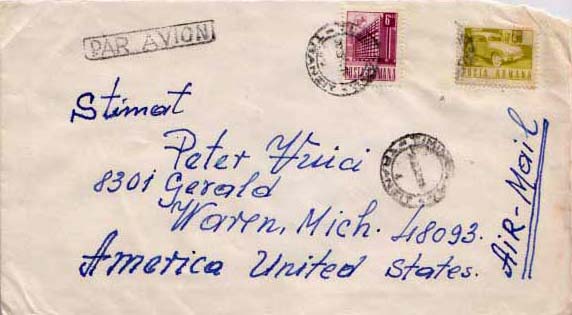 PAR AVION
6L
POSTA ROMANA
POSTA ROMANA
Stimat
Peter Vuici
8301 Gerald
Waren, Mich. 48093.
America United States.
AIR-Mail